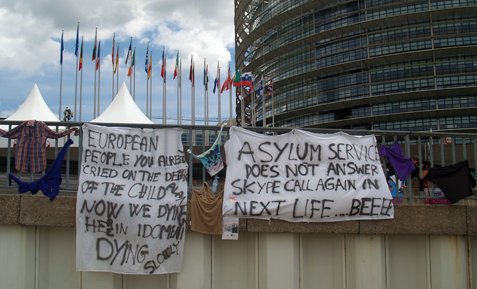 EUROPEAN
PEOPLE YOU ALREADY
CRIED ON THE
OF THE CHILD
NOW WE DYING
HERE IN IDOMENI
DYING
SLOWLY
ASYLUM SERVICE
DOES NOT ANSWER
SKYPE CALL AGAIN IN
NEXT LIFE... BEEEP